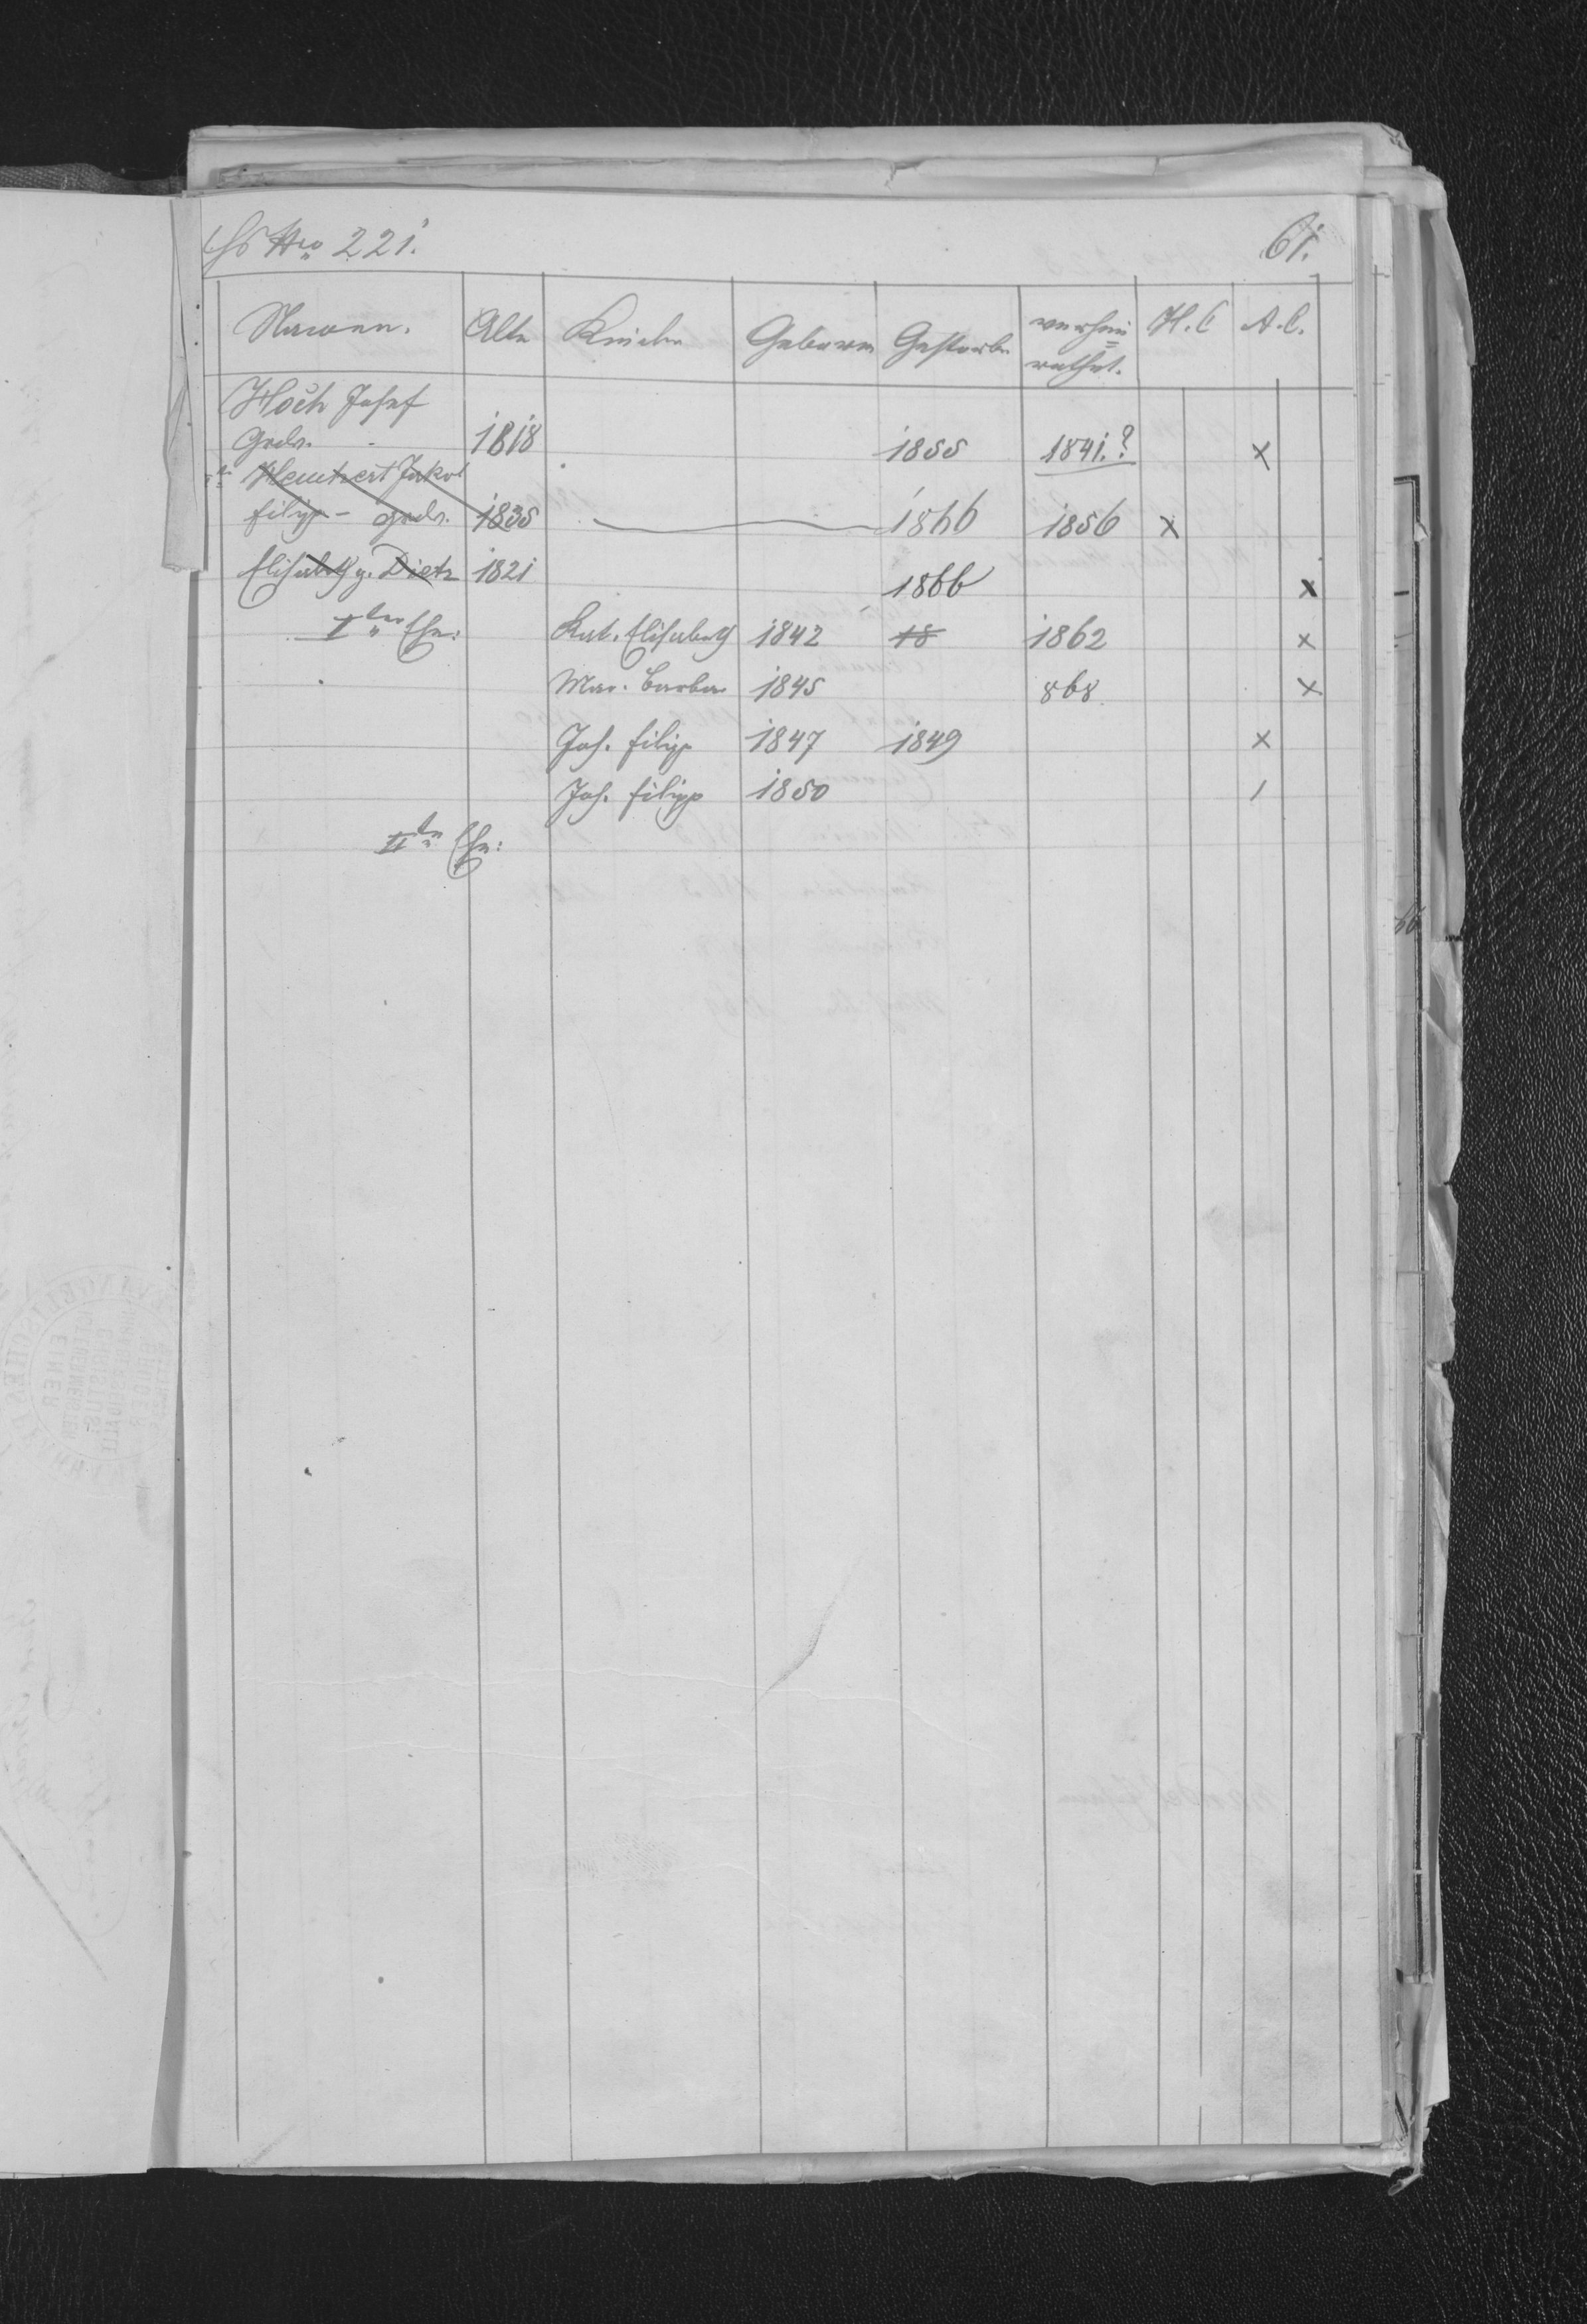 Hs Nro 221. 61.
Namen. Alte Kinder Geboren Gestorben verhei= rathet. H.C A.C.
Hoch Josef
Grds. 1818 1855 1841.? x
Hentzert Jakob
filipp - Grds. 1835 1866 1856 x
Elisabeth g. Dietz 1821 1866 x
Iter Ehe: Kat. Elisabeth 1842 18 1862 x
Mar. Barba 1845 868. x
Joh. filipp 1847 1849 x
Joh. filipp 1850 /
IIte Ehe: